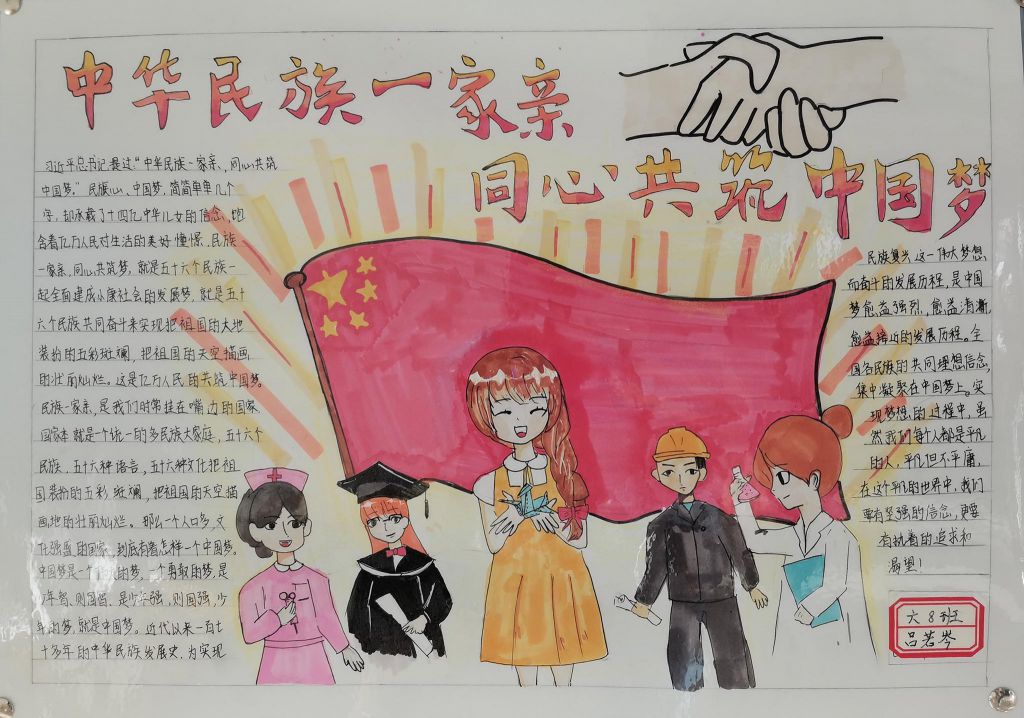 中华民族一家亲
同心共筑中国梦
习近平总书记提过:“中华民族一家亲,同心共筑
中国梦。”民族心、中国梦,简简单单几个
字,却承载了十四亿中华儿女的信念,饱
含着亿万人民对生活的美好憧憬,民族
一家亲,同心共筑梦,就是五十六个民族一
起全面建成小康社会的发展梦,就是五十
六个民族共同奋斗来实现把祖国的大地
装扮的五彩斑斓,把祖国的天空描画
的壮丽灿烂。这是亿万人民的共筑中国梦。
民族一家亲,是我们时常挂在嘴边的国家,
国家本就是一个统一的多民族大家庭,五十六个
民族,五十六种语言,五十六种文化把祖
国装扮的五彩斑斓,把祖国的天空描
画地的壮丽灿烂。那么一个人口多,文
化强盛的国家,到底有着怎样一个中国梦。
中国梦是一个的梦,一个勇敢的梦,是
少年智,则国智,是少年强,则国强,少
年的梦,就是中国梦。近代以来一百七
十多年的中华民族发展史,为实现
民族复兴这一伟大梦想
而奋斗的发展历程,是中国
梦愈益强烈,愈益清晰,
愈益接近的发展历程。全
国各民族的共同理想信念,
集中凝聚在中国梦上。实
现梦想的过程中,虽
然我们每个人都是平凡
的人,平凡但不平庸,
在这个平凡的世界中,我们
要有坚强的信念,更要
有执着的追求和
渴望!
六8班
吕若岑